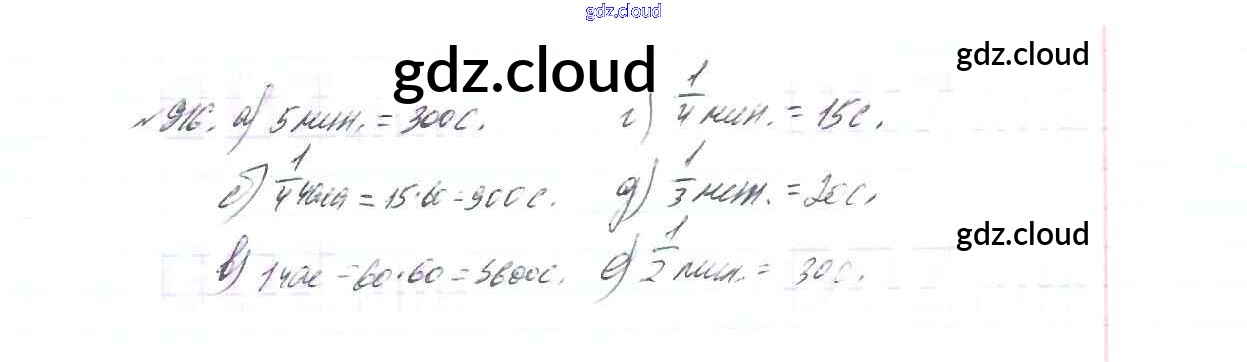 gdz.cloud
gdz.cloud
gdz.cloud
№916. а) 5 мин. = 300 с. г) 1/4 мин. = 15 с.
б) 1/4 часа = 15·60 = 900 с. д) 1/3 мин. = 20 с.
gdz.cloud
в) 1 час = 60·60 = 3600 с. е) 1/2 мин. = 30 с.